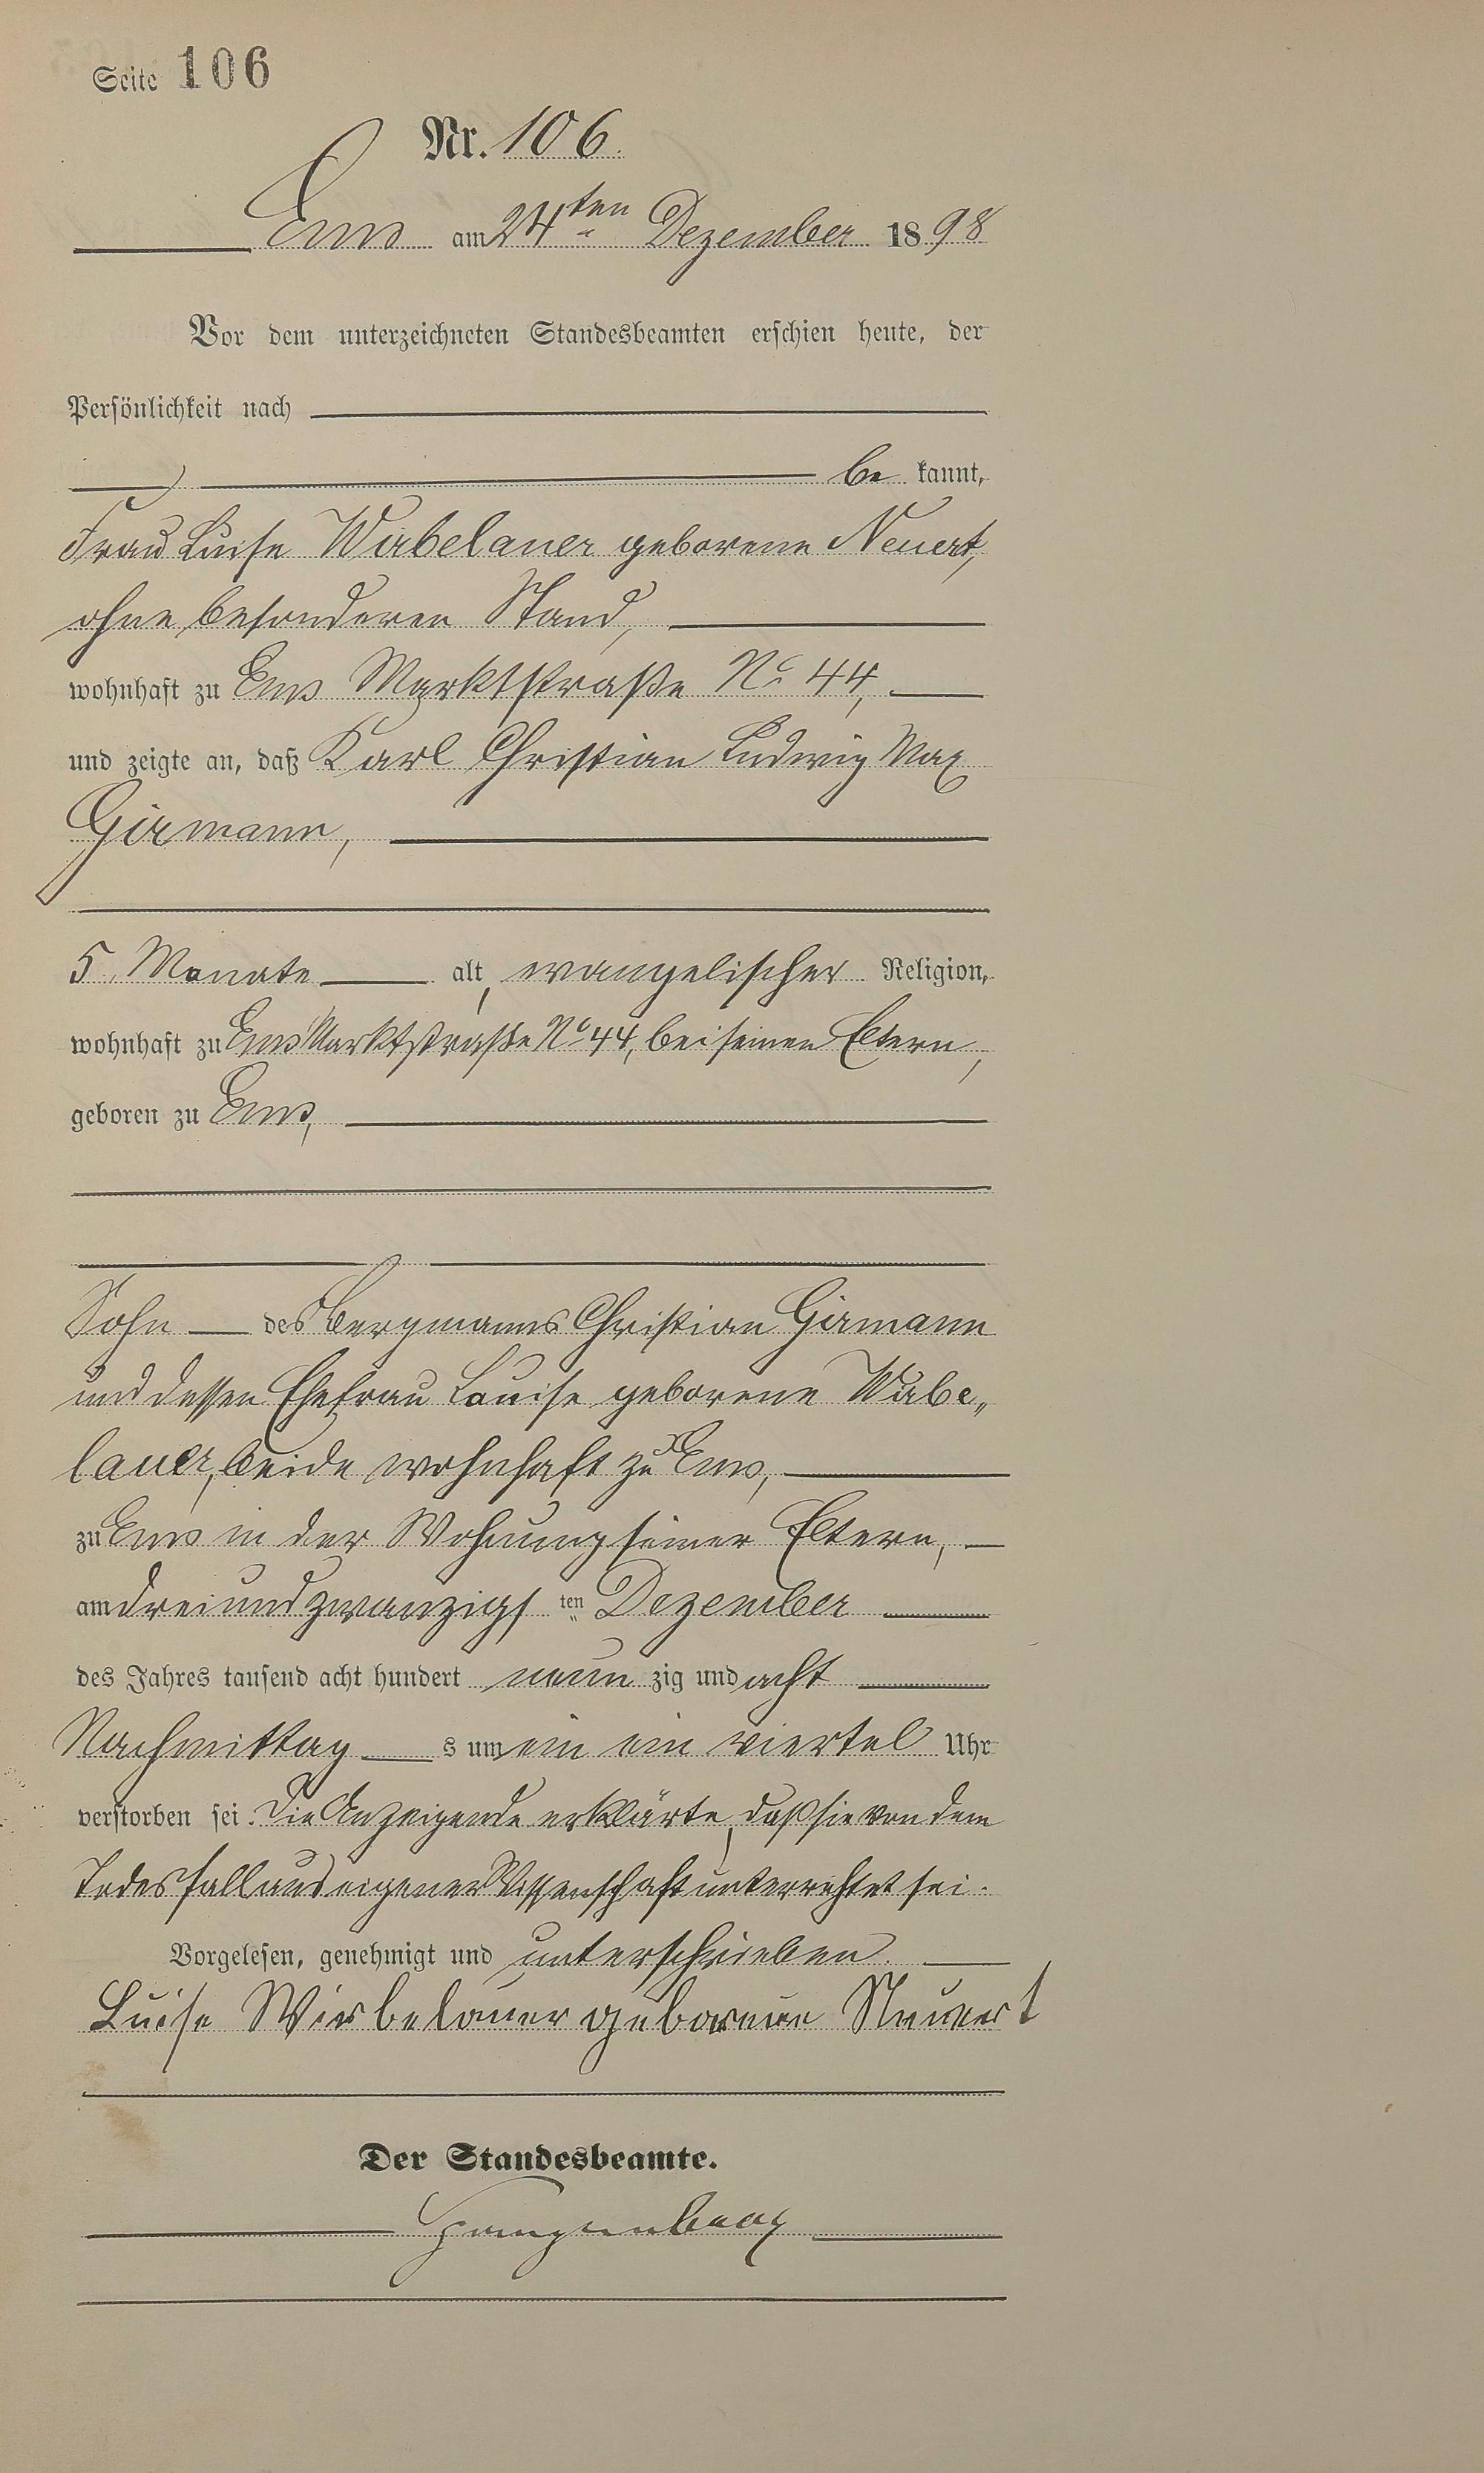 Seite 106
Nr. 106.
Ems am 24ten Dezember 1898
Vor dem unterzeichneten Standesbeamten erschien heute, der
Persönlichkeit nach
be kannt,
Frau Luise Wirbelauer geborene Neuert,
ohne besonderen Stand,
wohnhaft zu Ems Marktstraße No 44,
und zeigte an, daß Karl Christian Ludwig Max
Girmann,
5 Monate alt, evangelischer Religion,
wohnhaft zu Ems Marktstraße No 44, bei seinen Eltern,
geboren zu Ems,
Sohn des Bergmanns Christian Girmann
und dessen Ehefrau Louise geborene Wirbe„
lauer, beide wohnhaft zu Ems,
zu Ems in der Wohnung seiner Eltern,
am dreiundzwanzigsten Dezember
des Jahres tausend acht hundert neun zig und acht
Nachmittag s um ein ein viertel Uhr
verstorben sei. Die Anzeigende erklärte, daß sie von dem
Todesfall aus eigener Wissenschaft unterrichtet sei.
Vorgelesen, genehmigt und unterschrieben.
Luise Wirbelauer geborene Neuert
Der Standesbeamte.